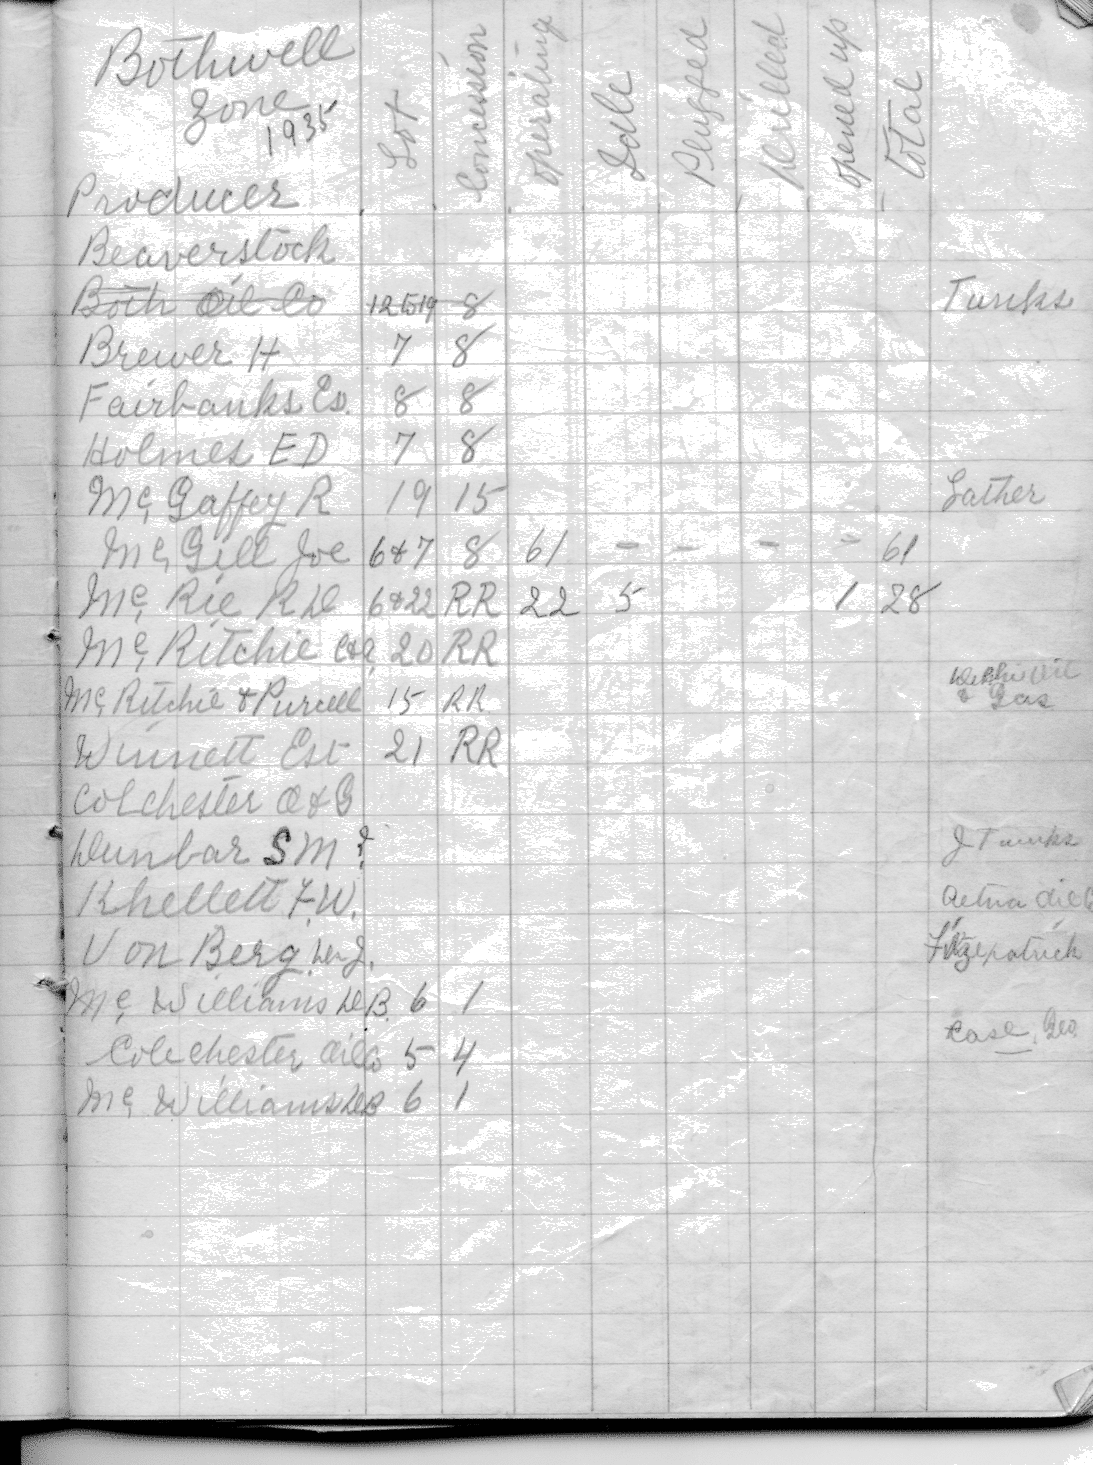 Bothwell
Zone
1935
Producer Lot Concession operating Idle Plugged Drilled opened up total
Beaverstock
Both Oil Co 12 to 19 8 Tunks
Brewer H 7 8
Fairbanks Es. 8 8
Holmes E D 7 8
Mc Gaffey R 19 15 Lather
Mc Gill Joe 6&7 8 61 - - - " 61
Mc Rie R D 6&22 RR 22 5 1 28
Mc Ritchie 20 RR
Mc Ritchie & Purcell 15 RR Oil & Gas
Winnett Est 21 RR
Colchester O & G
Dunbar S M ? J Tunks
Khellett F.W. Aetna Oil C
Von Berg J. Fitzepatrick
Mc Williams D B. 6 1
Colechester Oil Co 5 4 Case, Geo
Mc Williams D B 6 1